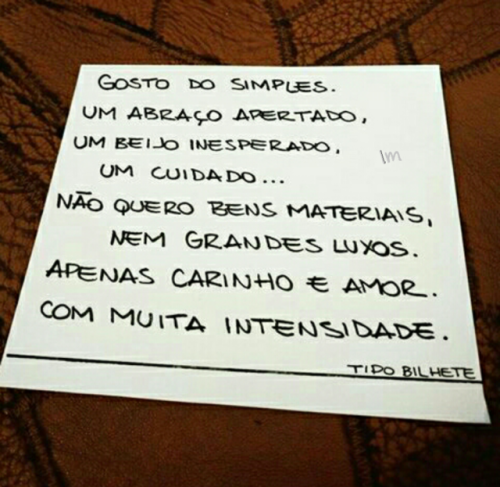 GOSTO DO SIMPLES.
UM ABRAÇO APERTADO,
UM BEIJO INESPERADO,
lm
UM CUIDADO...
NÃO QUERO BENS MATERIAIS,
NEM GRANDES LUXOS.
APENAS CARINHO E AMOR.
COM MUITA INTENSIDADE.
TIPO BILHETE